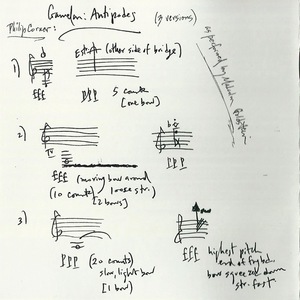 Gamelan: Antipodes (3 versions)
Philip Corner:
as performed by Malcolm Goldstein
1) Est. (other side of bridge)
fff ppp 5 counts
[one bow]
2)
fff (moving bow around)
(10 counts) loose str. ppp
[2 bows]
3)
ppp (20 counts)
slow, light bow
[1 bow]
fff highest pitch
end of fngbd.
bow squeezed down
str. fast